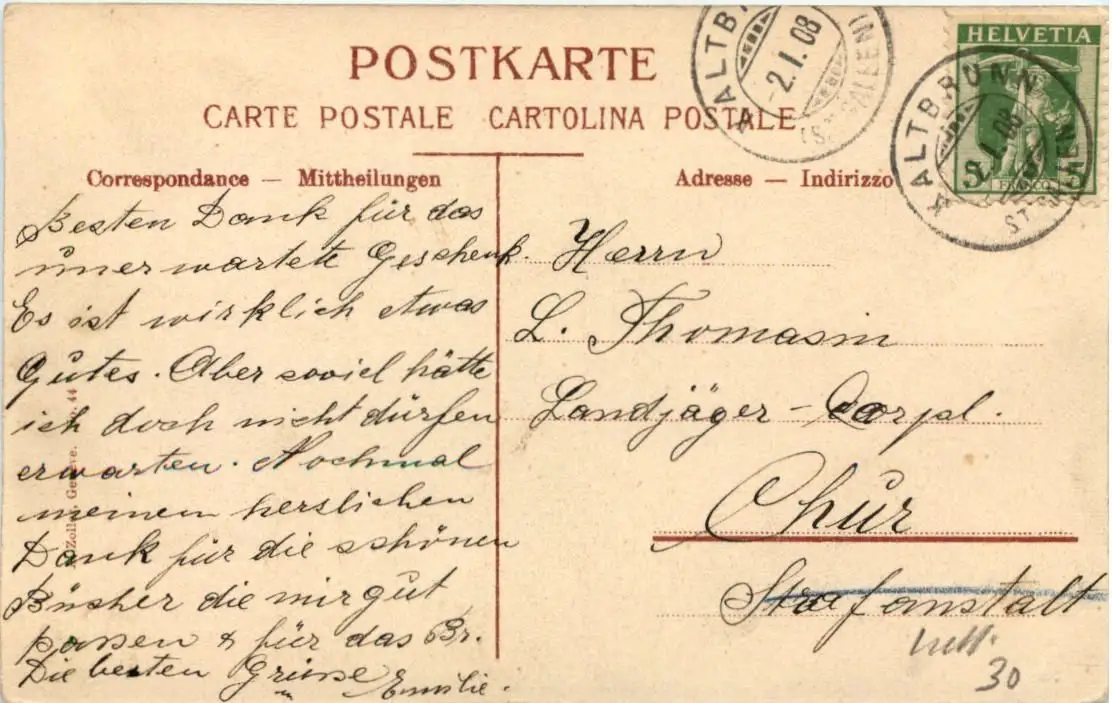 POSTKARTE
CARTE POSTALE CARTOLINA POSTALE
KALTBRUNN
-2.I.08
(ST. GALLEN)
HELVETIA
5 5
FRANCO
KALTBRUNN
2.I.08
ST. GALLEN
Correspondance — Mittheilungen
Besten Dank für das
ünerwartete Geschenk.
Es ist wirklich etwas
Gütes. Aber soviel hätte
ich doch nicht dürfen
erwarten. Nochmal
meinem herslichen
Dank für die schönen
Büsher die mir gut
passen & für das Br.
Die besten Grüsse
Emilie.
Genève. 44
Adresse — Indirizzo
Herrn
L. Thomasin
Landjäger-Corpl.
Chür
Strafanstalt
30